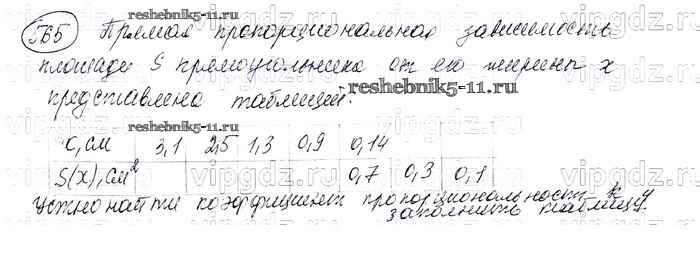 565 Прямая пропорциональная зависимость
площади S прямоугольника от его ширины x
представлена таблицей:
x, см 3,1 2,5 1,3 0,9 0,14
S(x), см² 0,7 0,3 0,1
Устно найти коэффициент пропорциональности k и
заполнить таблицу.
reshebnik5-11.ru
reshebnik5-11.ru
reshebnik5-11.ru
reshebnik5-11.ru
vipgdz.ru